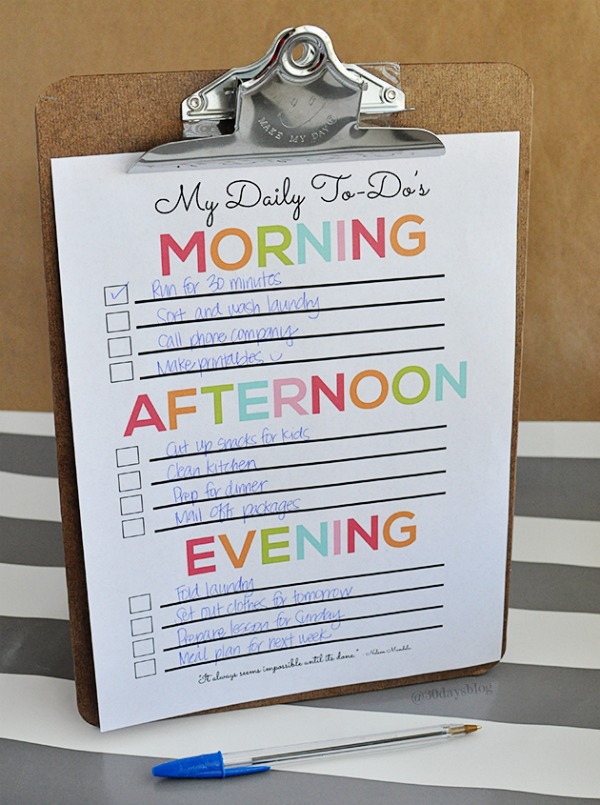 MAKE MY DAY
My Daily To-Do's
MORNING
Run for 30 minutes
Sort and wash laundry
Call phone company
Make printables
AFTERNOON
Cut up snacks for kids
Clean kitchen
Prep for dinner
Mail off packages
EVENING
Fold laundry
Set out clothes for tomorrow
Prepare lesson for Sunday
Meal plan for next week
"It always seems impossible until its done." - Nelson Mandela
@30daysblog